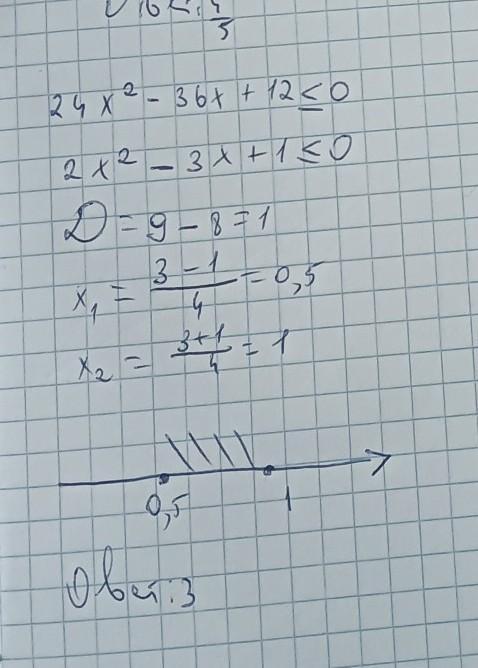 4/5
24x² - 36x + 12 ≤ 0
2x² - 3x + 1 ≤ 0
D = 9 - 8 = 1
x₁ = (3 - 1)/4 = 0,5
x₂ = (3 + 1)/4 = 1
0,5 1
Ответ: 3